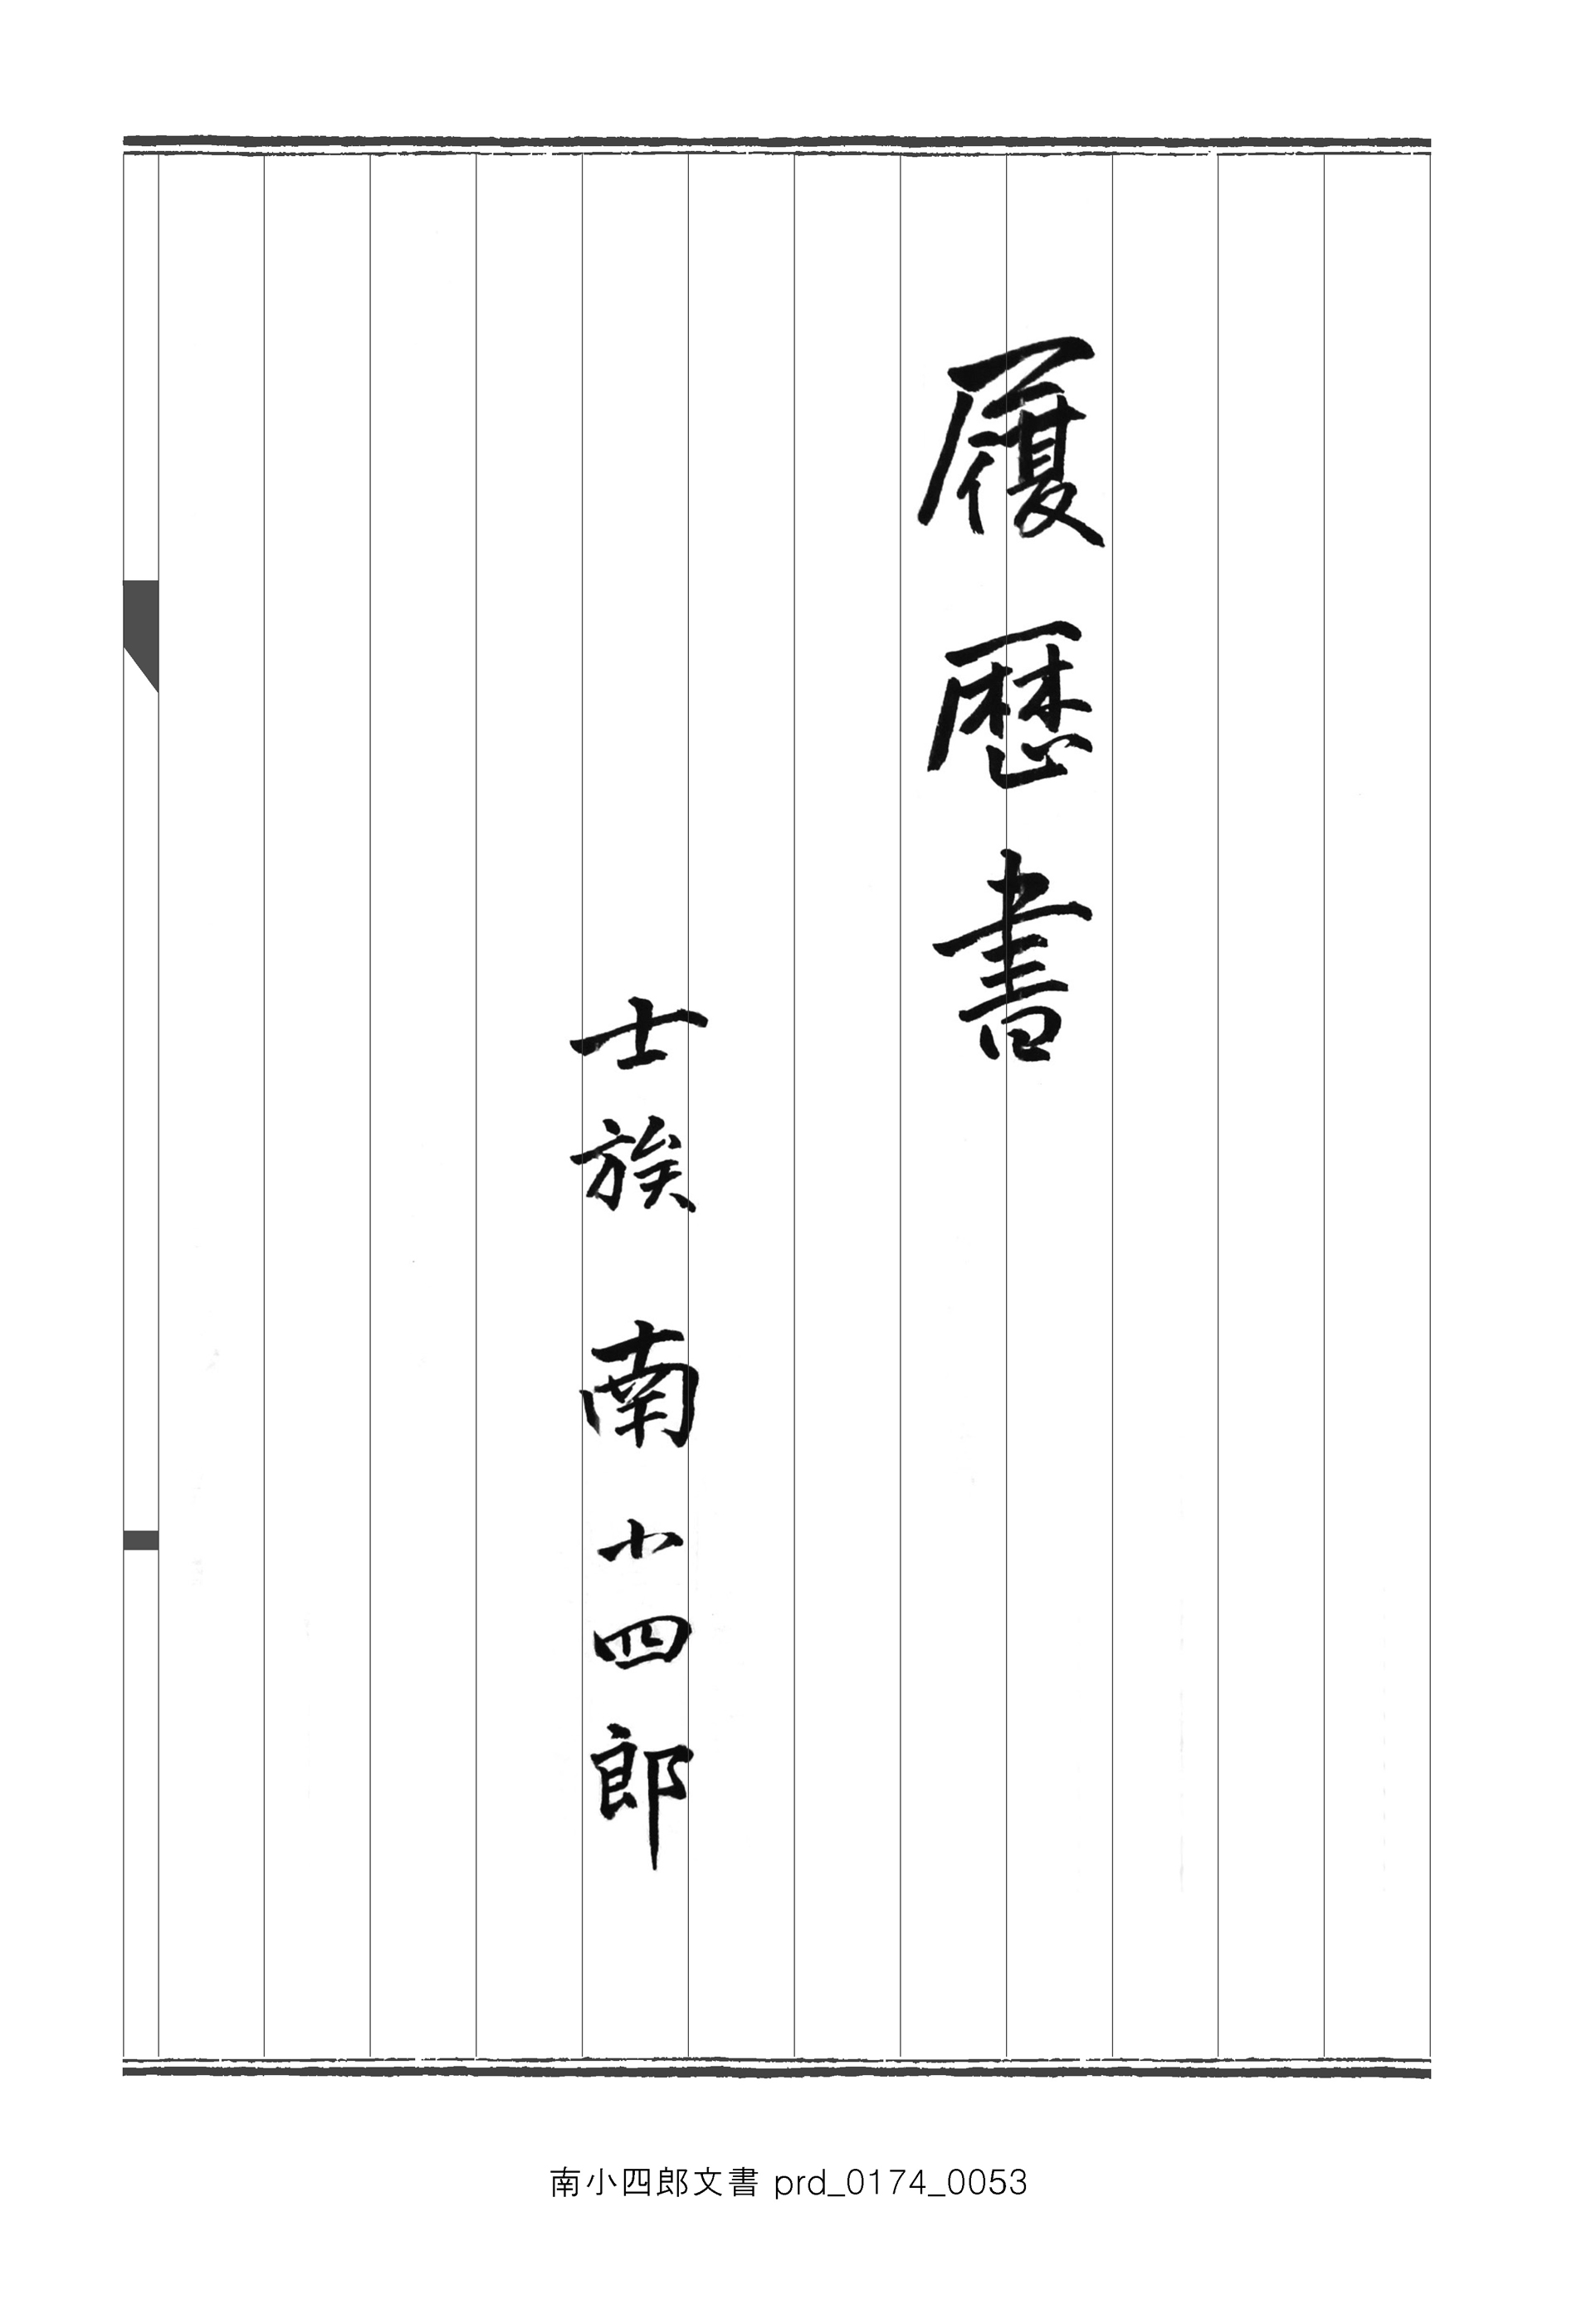 履歴書
士族 南小四郎
南小四郎文書 prd_0174_0053